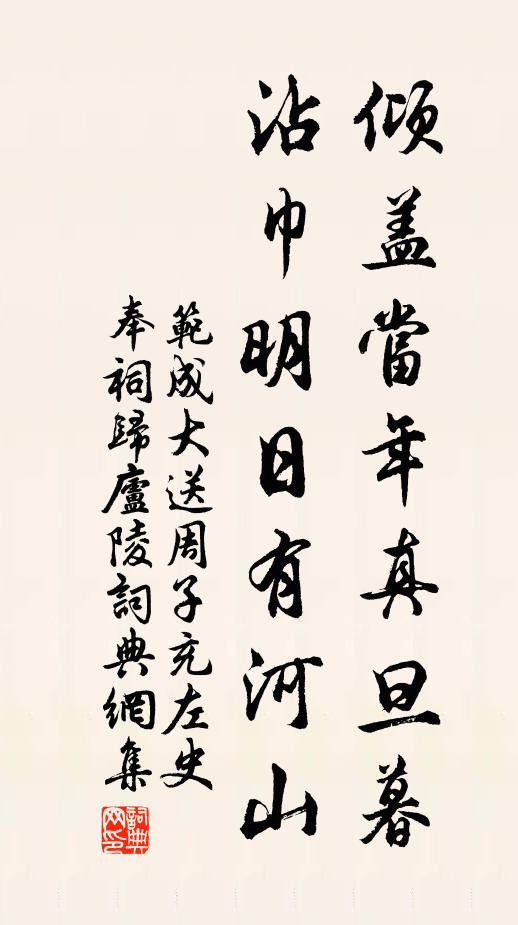 傾盖當年真旦暮
沾巾明日有河山
範成大送周子充左史
奉祠歸廬陵詞典網集
詞典網印